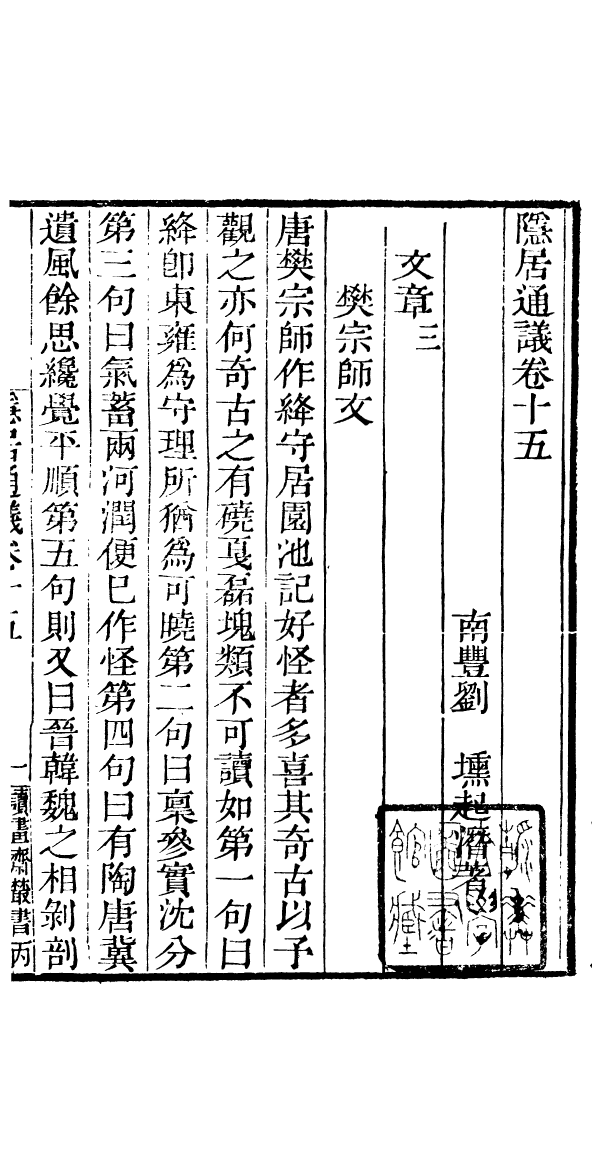 隱居通議卷十五
南豐劉 壎起潛著
文章三
樊宗師文
唐樊宗師作絳守居園池記好怪者多喜其奇古以予
觀之亦何奇古之有磽戛磊塊類不可讀如第一句曰
絳即東雍為守理所猶為可曉第二句曰稟參實沈分
第三句曰氣蓄兩河潤便已作怪第四句曰有陶唐冀
遺風餘思纔覺平順第五句則又曰晉韓魏之相剝剖
隱居通議卷十五
一
讀畫齋叢書丙
圖書
館藏